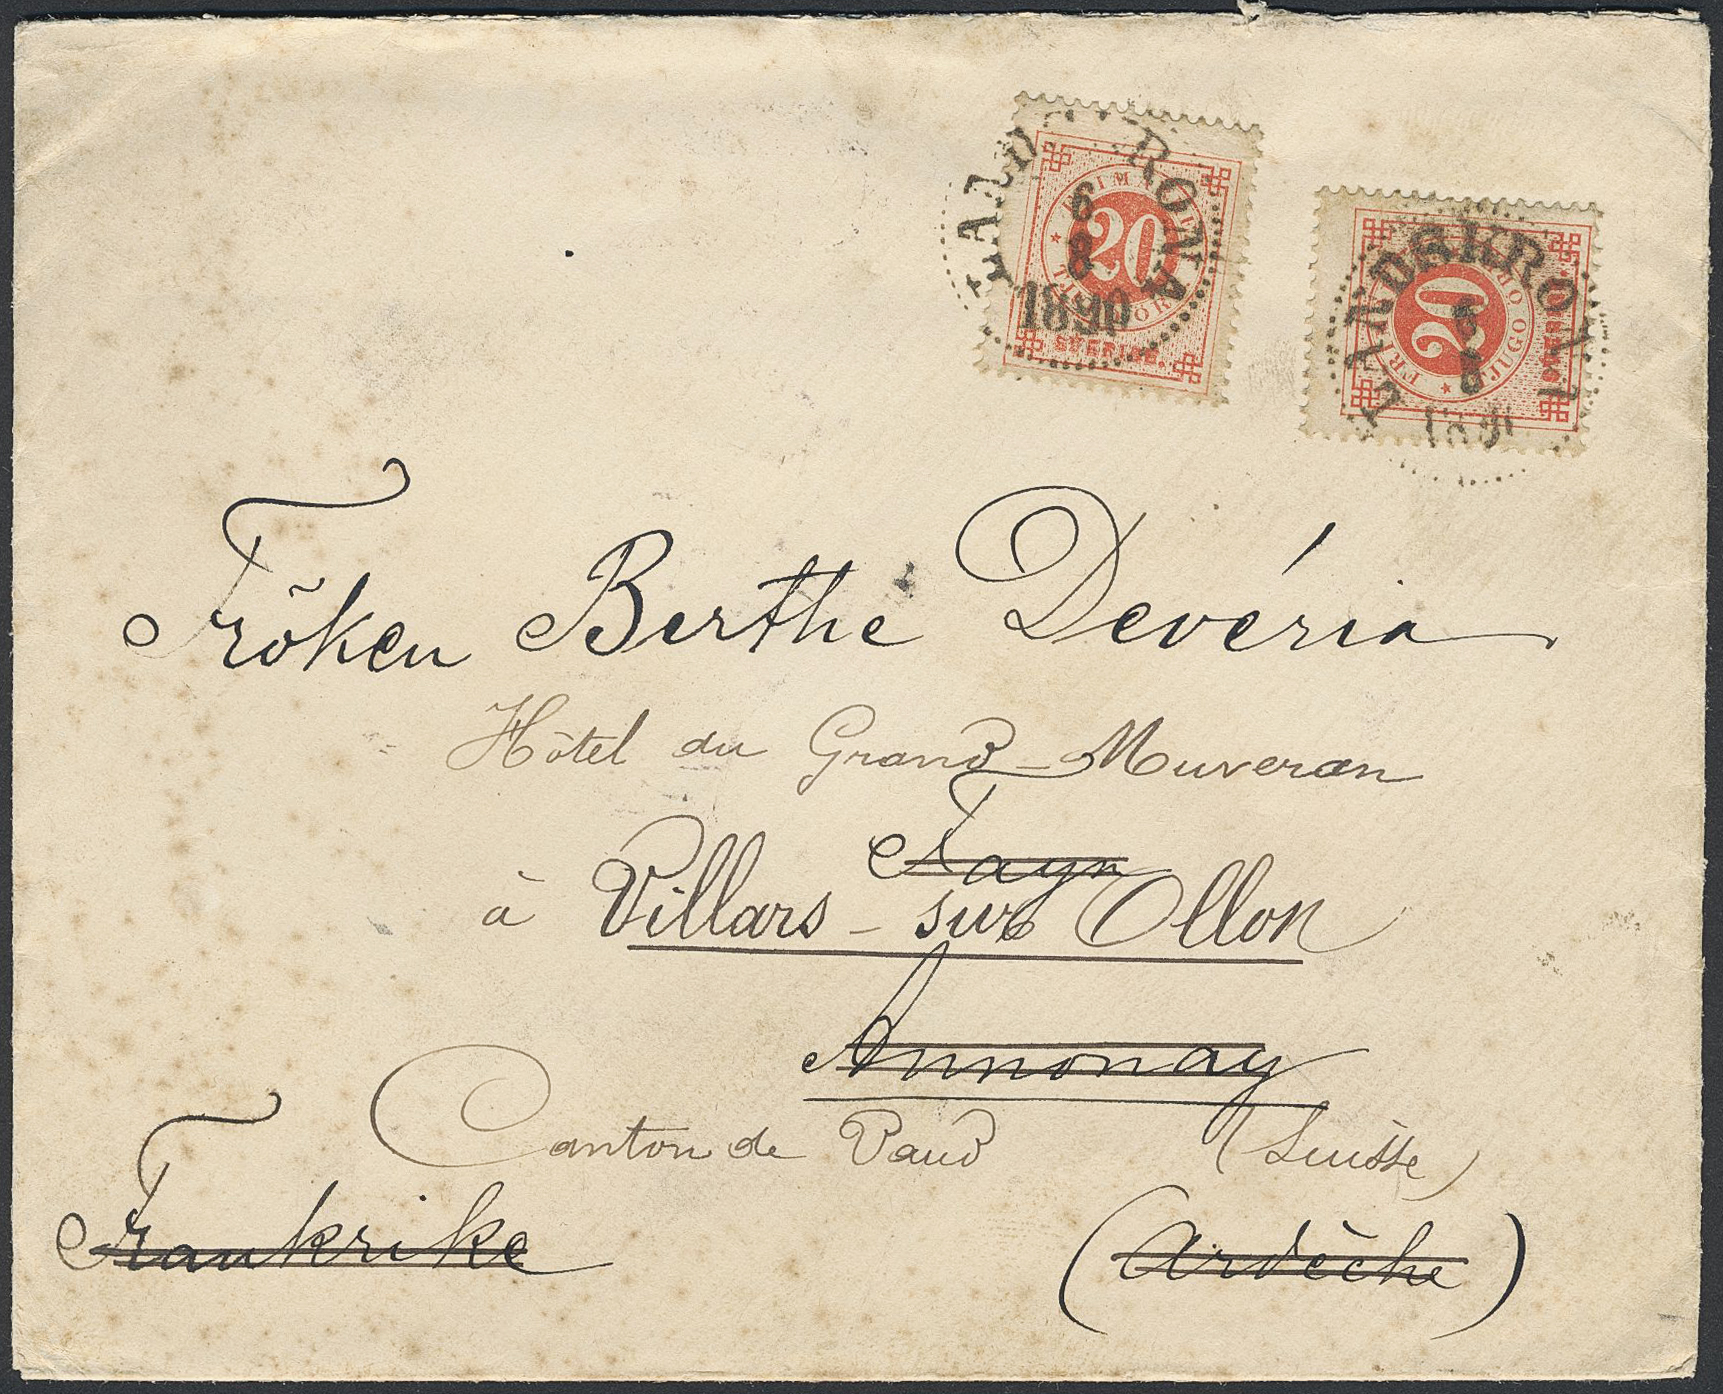 LANDSKRONA
6
8
1890
20
FRIMÄRKE
TJUGO ÖRE
SVERIGE.
LANDSKRONA
6
8
20
TJUGO ÖRE
SVERIGE.
Fröken Berthe Devéria
Hôtel du Grand-Muveran
Fayn
à Villars-sur Ollon
Annonay
Canton de Vaud (Suisse)
Frankrike (Ardèche)